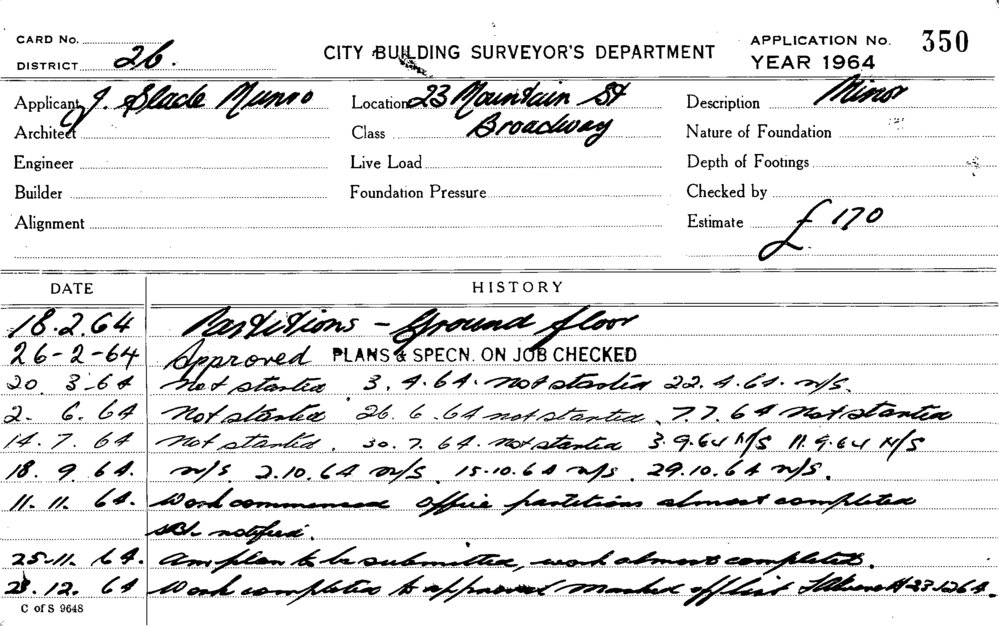 CARD No.
DISTRICT 26.
CITY BUILDING SURVEYOR'S DEPARTMENT
APPLICATION No. 350
YEAR 1964
Applicant J. Slade Munro
Location 23 Mountain St
Description Minor
Architect
Class Broadway
Nature of Foundation
Engineer
Live Load
Depth of Footings
Builder
Foundation Pressure
Checked by
Alignment
Estimate £170
DATE HISTORY
18.2.64 Partitions - Ground floor
26-2-64 Approved PLANS & SPECN. ON JOB CHECKED
20 3-64 Not started 3.4.64. not started 22.4.64. n/s.
2. 6.64 Not started 26.6.64 not started. 7.7.64 Not started
14.7.64 Not started. 30.7.64. not started 3.9.64 N/S 11.9.64 N/S
18.9.64. n/s 2.10.64 n/s. 15.10.64 n/s. 29.10.64 n/s.
11.11.64. Work commenced office partitions almost completed
notified.
25-11.64. Am plan to be submitted, work almost completed.
23.12.64 Work completed to approved marked off list 23.12.64.
C of S 9648